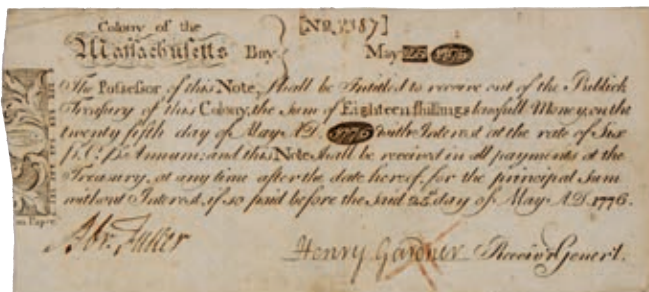 Colony of the [No. 2387]
Massachusetts Bay May 25 1775
The Possessor of this Note, shall be Intitled to receive out of the Publick
Treasury of this Colony, the Sum of Eighteen shillings lawfull Money, on the
twenty fifth day of May A.D. 1776 with Interest at the rate of Six
Pr. Ct. Pr. Annum: and this Note shall be received in all payments at the
Treasury, at any time after the date hereof, for the principal Sum
without Interest, if so paid before the said 25th day of May A.D. 1776.
Abr. Fuller
Henry Gardner Receivr. Generl.